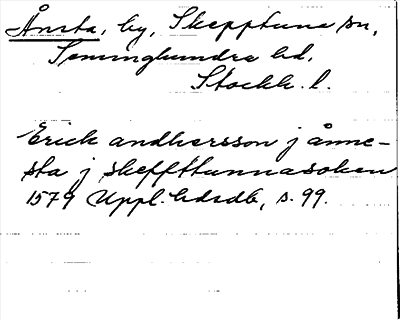 Ånsta, by, Skepptuna sn,
Seminghundra hd,
Stockh. l.
Erick andhersson j ånne-
sta j skeffttunnasoken
1579 Uppl. hdrdb, s. 99.